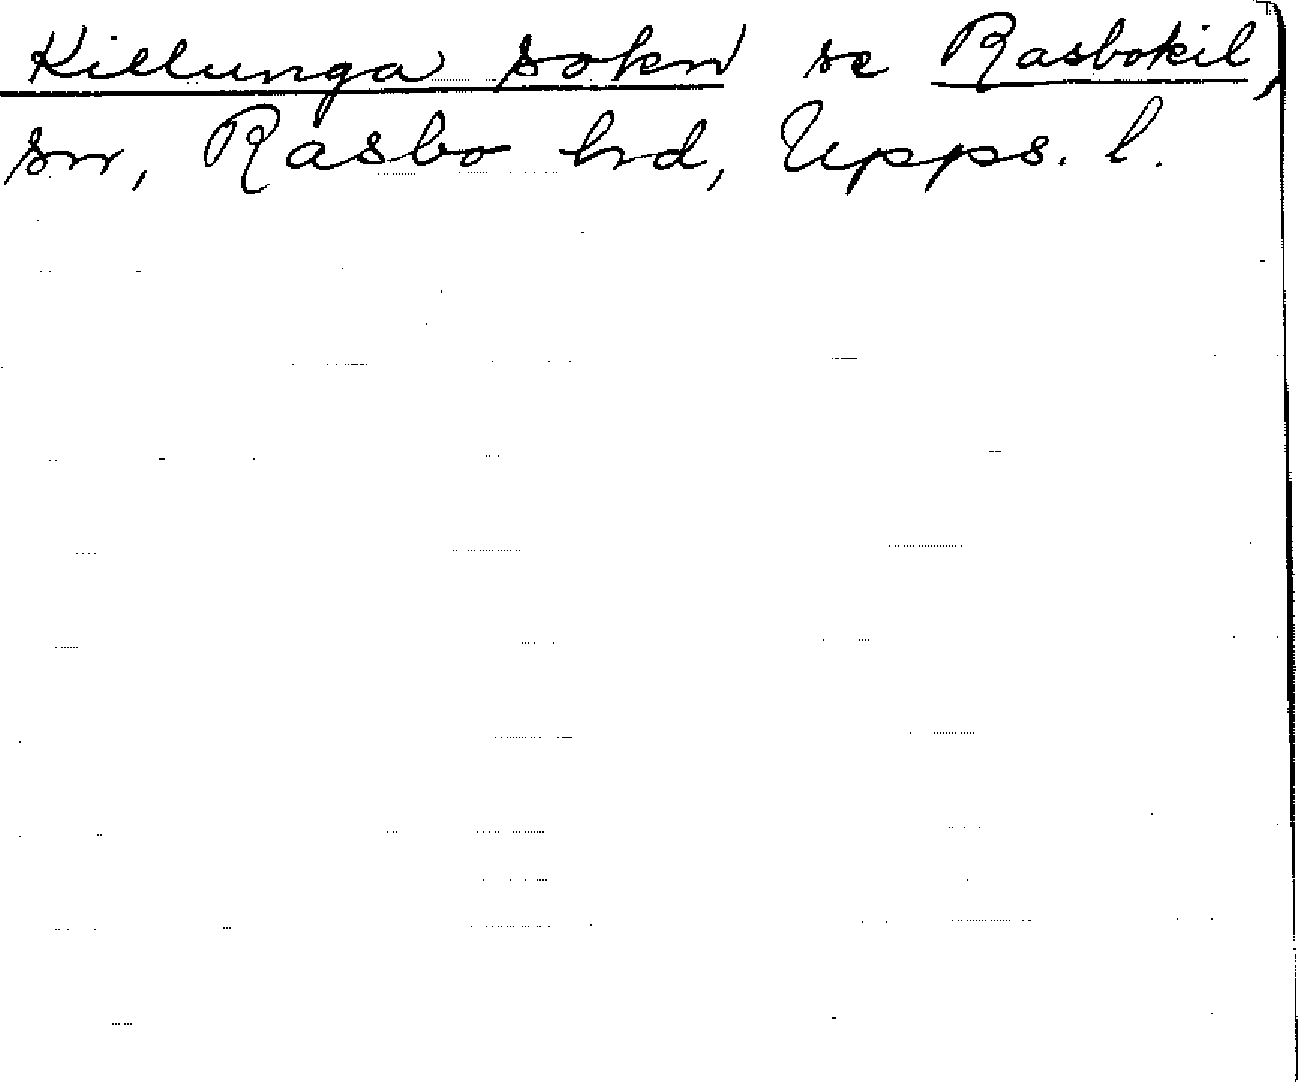 Killunga sokn se Rasbokil,
sn, Rasbo hd, Upps. l.